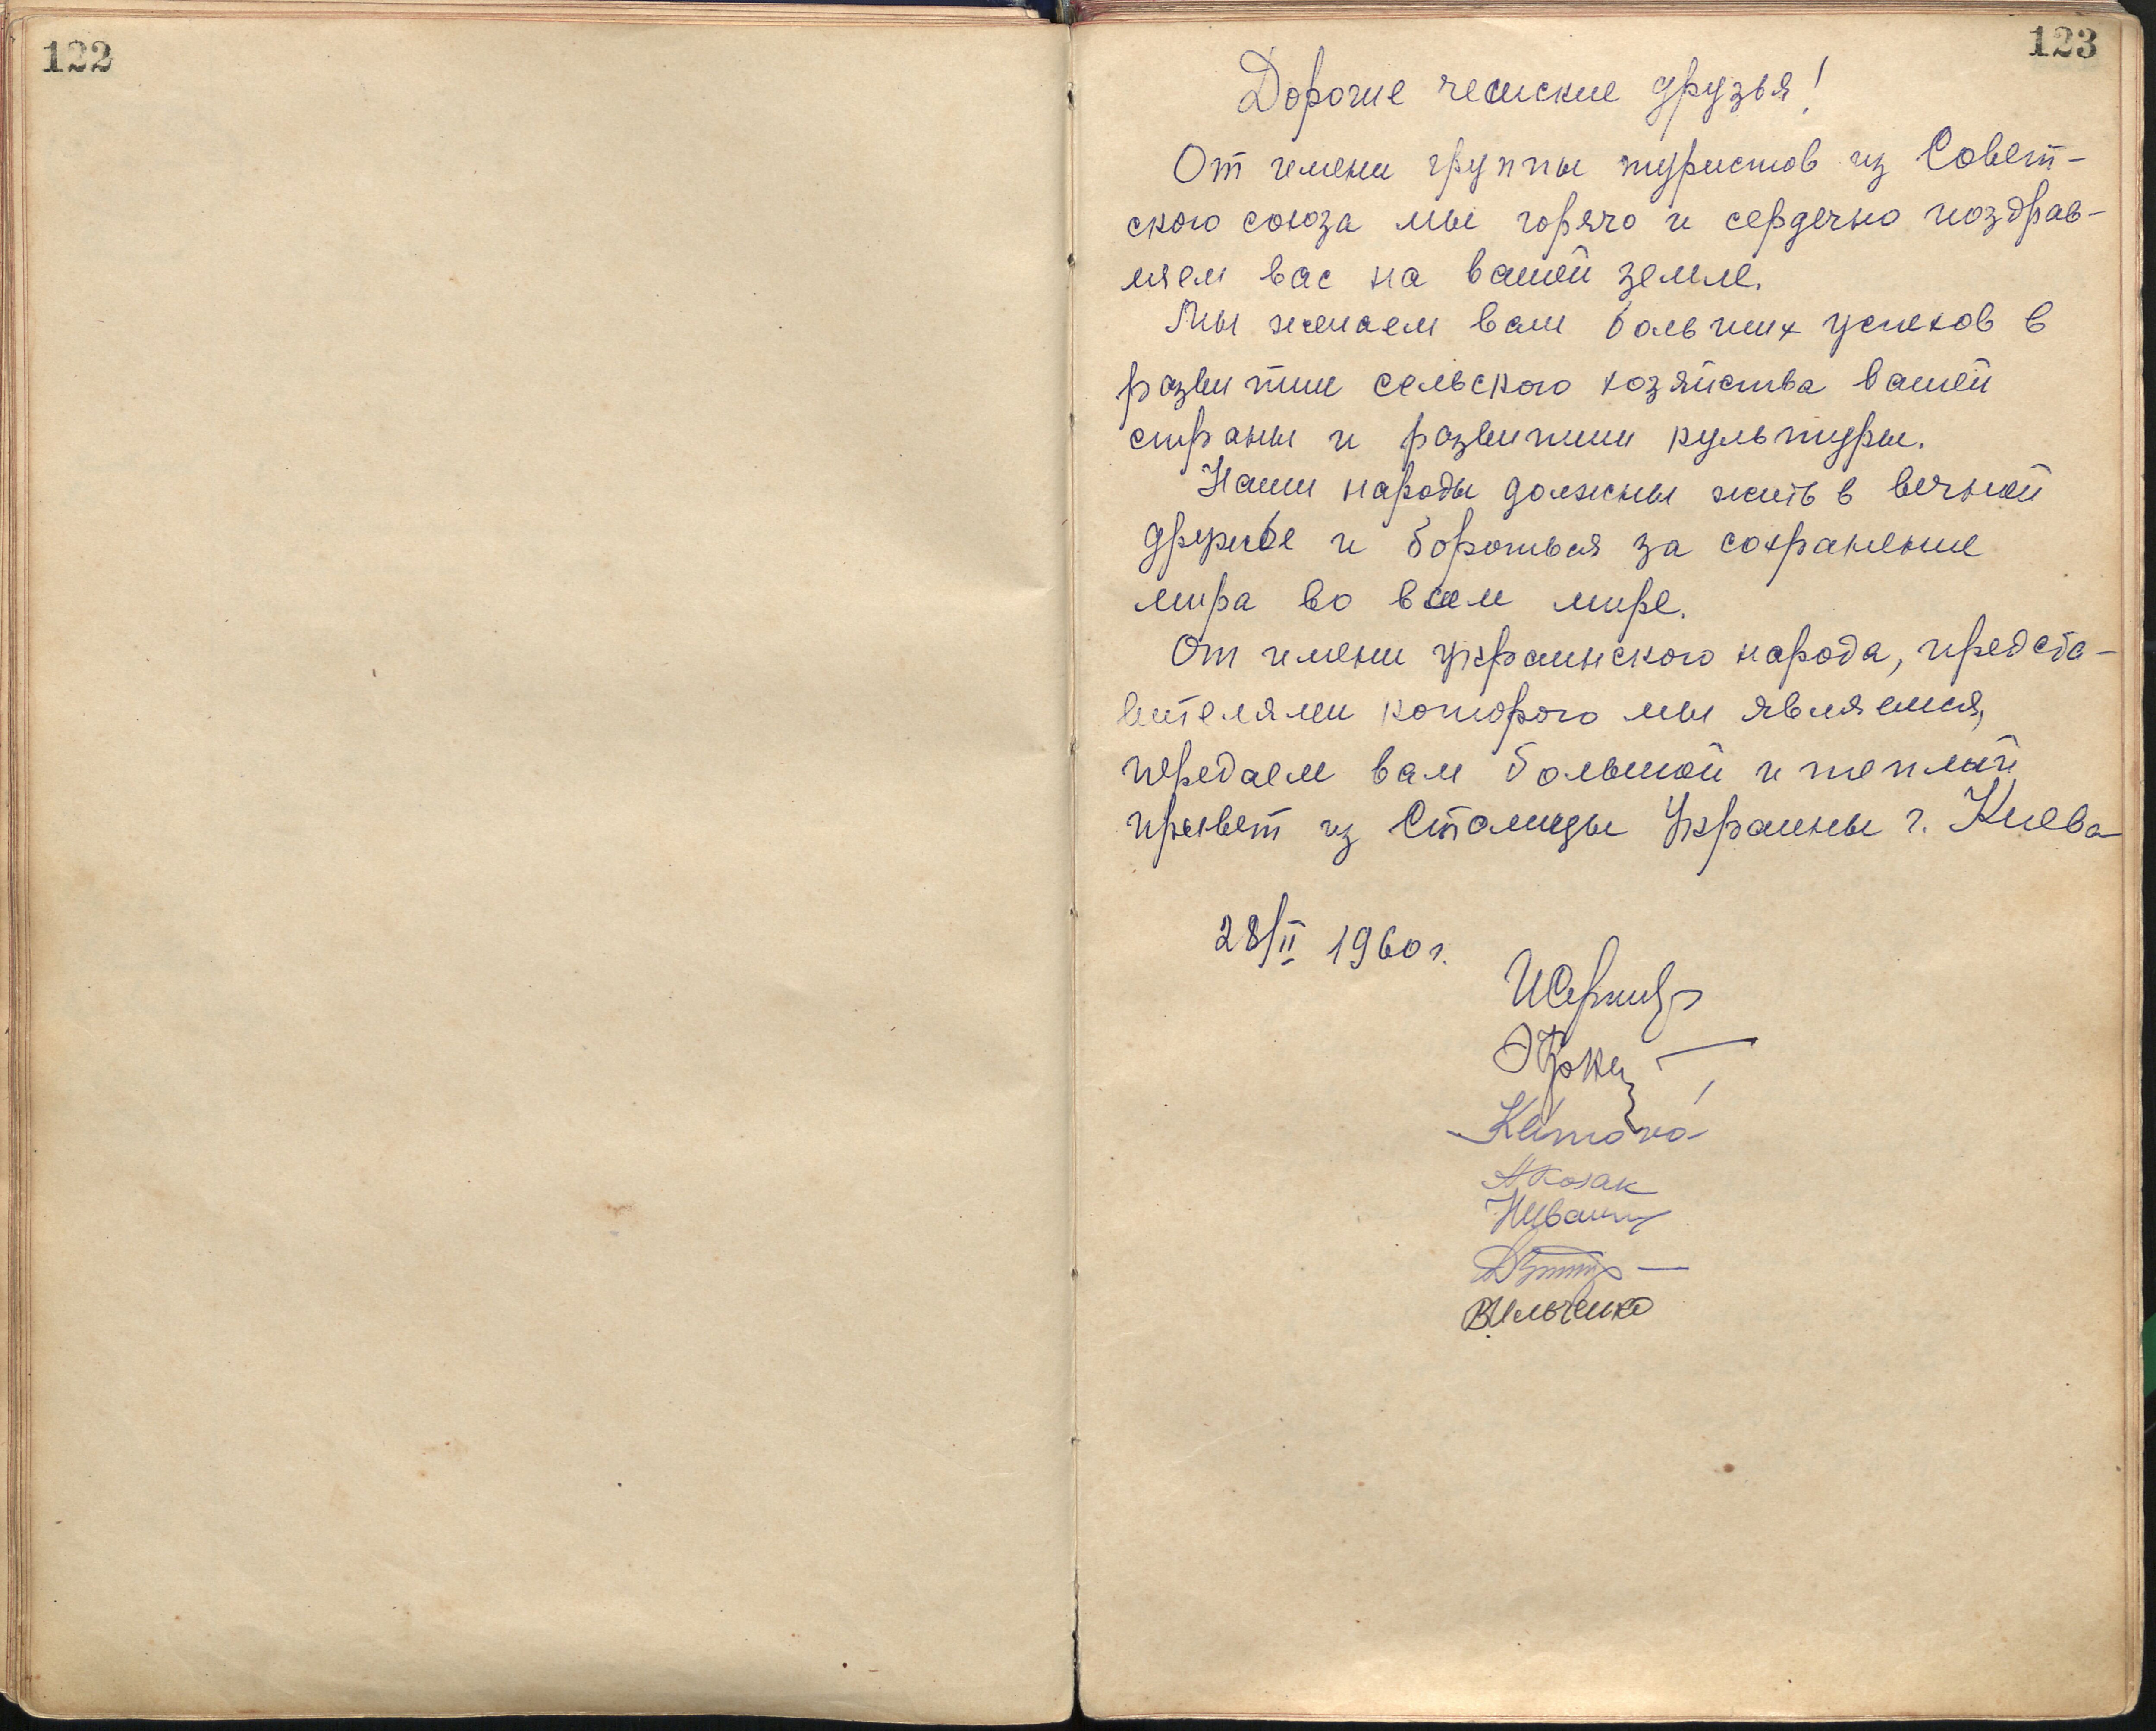 122
123
Дорогие чешские друзья!
От имени группы туристов из Совет-
ского союза мы горячо и сердечно поздрав-
ляем вас на вашей земле.
Мы желаем вам больших успехов в
развитии сельского хозяйства вашей
страны и развитии культуры.
Наши народы должны жить в вечной
дружбе и бороться за сохранение
мира во всем мире.
От имени украинского народа, предста-
вителями которого мы являемся,
передаем вам большой и теплый
привет из Столицы Украины г. Киева
28/II 1960 г.
АКозак
ВИльченко